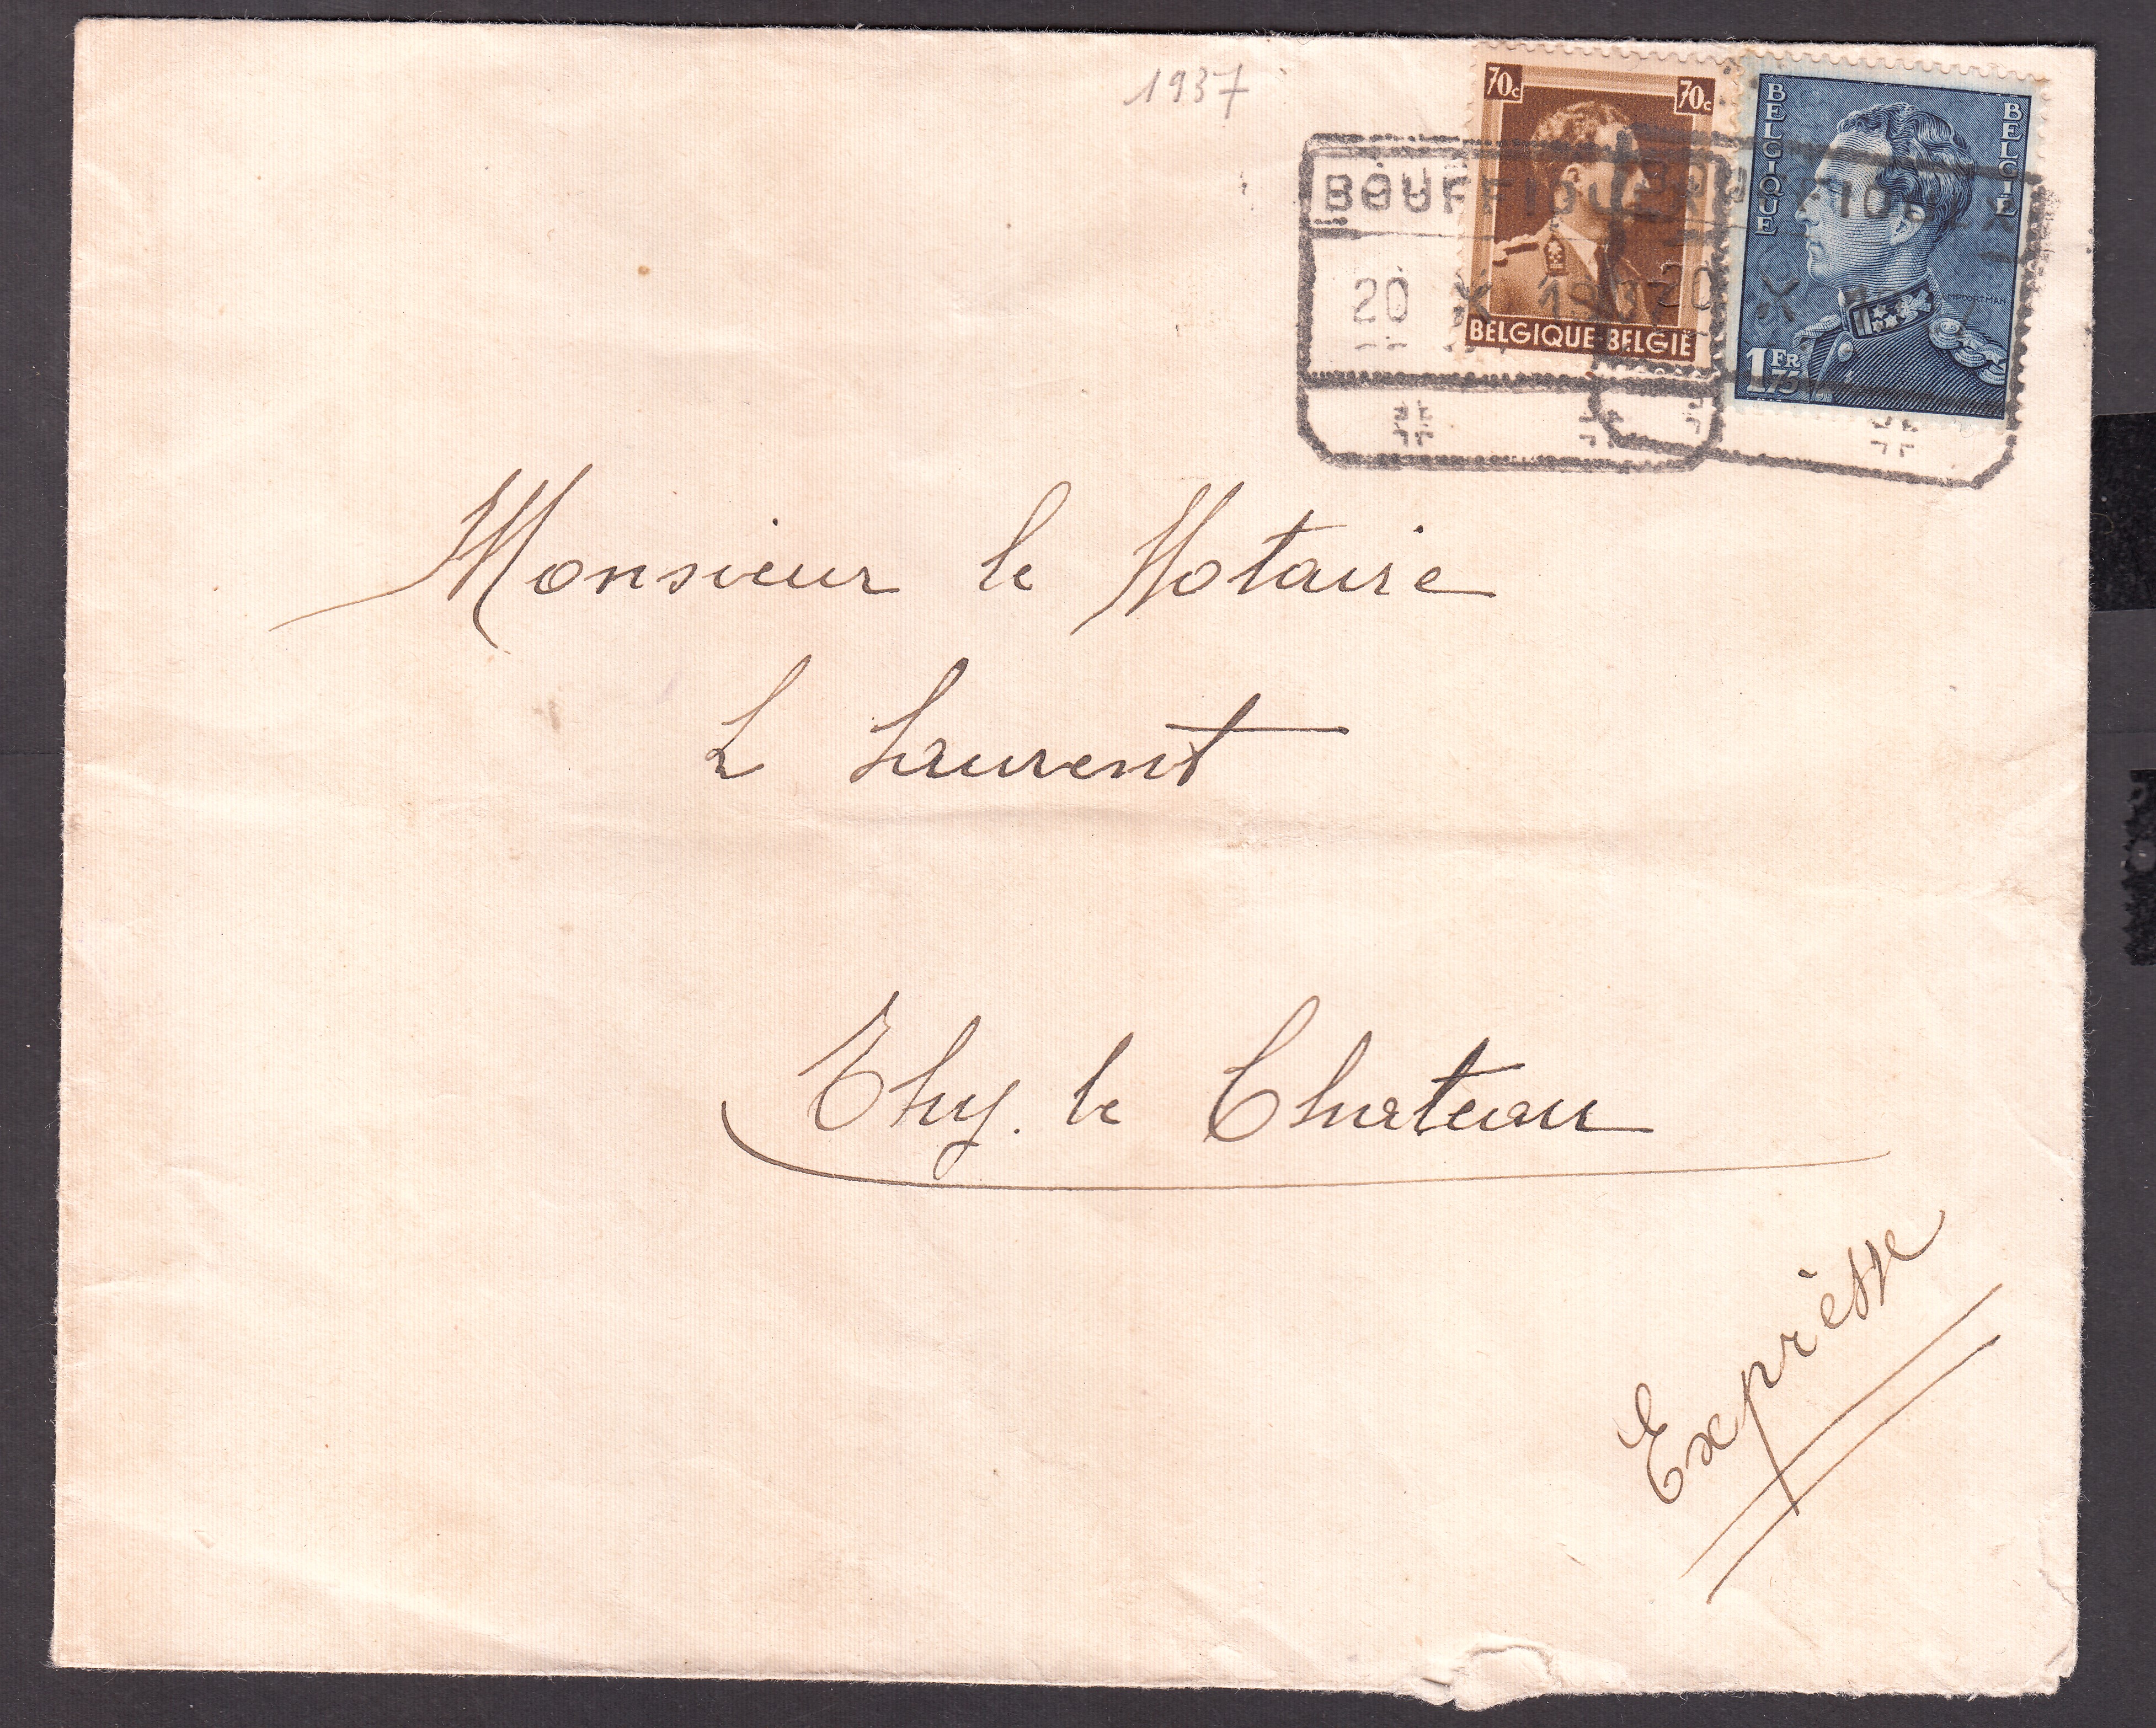 1937
70c 70c
BELGIQUE BELGIË
BELGIQUE
BELGIË
1 FR 75
BOUFFIOULX
20 X 1937
BOUFFIOULX
20 X
Monsieur le Notaire
L Laurent
Thy. le Chateau
Exprèsse